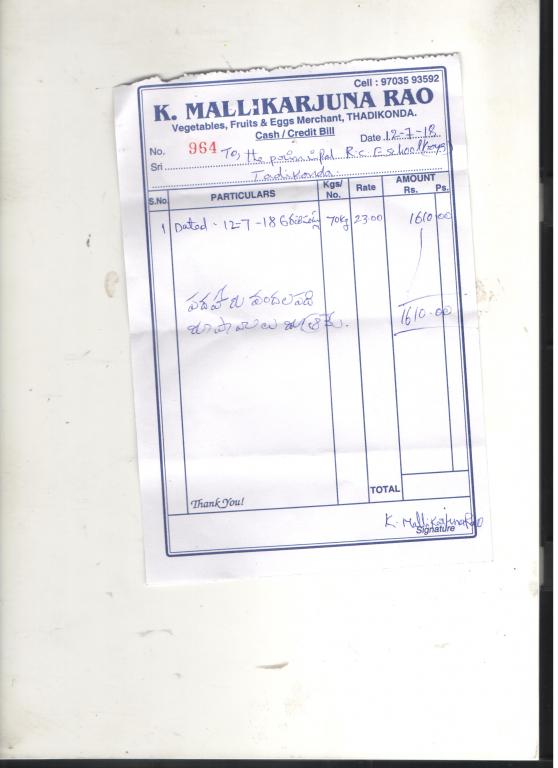 Cell : 97035 93592
K. MALLIKARJUNA RAO
Vegetables, Fruits & Eggs Merchant, THADIKONDA.
Cash / Credit Bill
No. 964 Date 12-7-18
Sri To, the principal R.C.E school (Boys)
Tadikonda.
S.No. PARTICULARS Kgs/ No. Rate AMOUNT Rs. Ps.
1 Dated - 12-7-18 70kg 23.00 1610.00
పదహారు వందలపది 1610.00
రూపాయలు మాత్రమే.
TOTAL
Thank You!
K. Mallikarjuna Rao
Signature